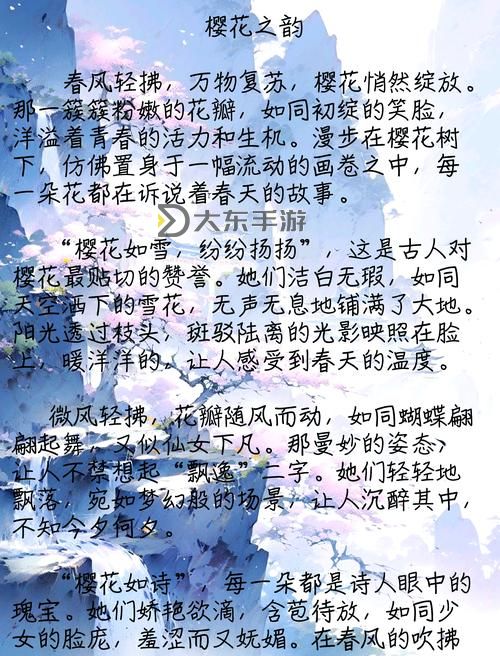 樱花之韵
春风轻拂，万物复苏，樱花悄然绽放。
那一簇簇粉嫩的花瓣，如同初绽的笑脸，
洋溢着青春的活力和生机。漫步在樱花树
下，仿佛置身于一幅流动的画卷之中，每
一朵花都在诉说着春天的故事。
大东手游
“樱花如雪，纷纷扬扬”，这是古人对
樱花最贴切的赞誉。她们洁白无瑕，如同
天空洒下的雪花，无声无息地铺满了大地。
阳光透过枝头，斑驳陆离的光影映照在脸
上，暖洋洋的，让人感受到春天的温度。
微风轻拂，花瓣随风而动，如同蝴蝶翩
翩起舞，又似仙女下凡。那曼妙的姿态，
让人不禁想起“飘逸”二字。她们轻轻地
飘落，宛如梦幻般的场景，让人沉醉其中，
不知今夕何夕。
“樱花如诗”，每一朵都是诗人眼中的
瑰宝。她们娇艳欲滴，含苞待放，如同少
女的脸庞，羞涩而又妩媚。在春风的吹拂